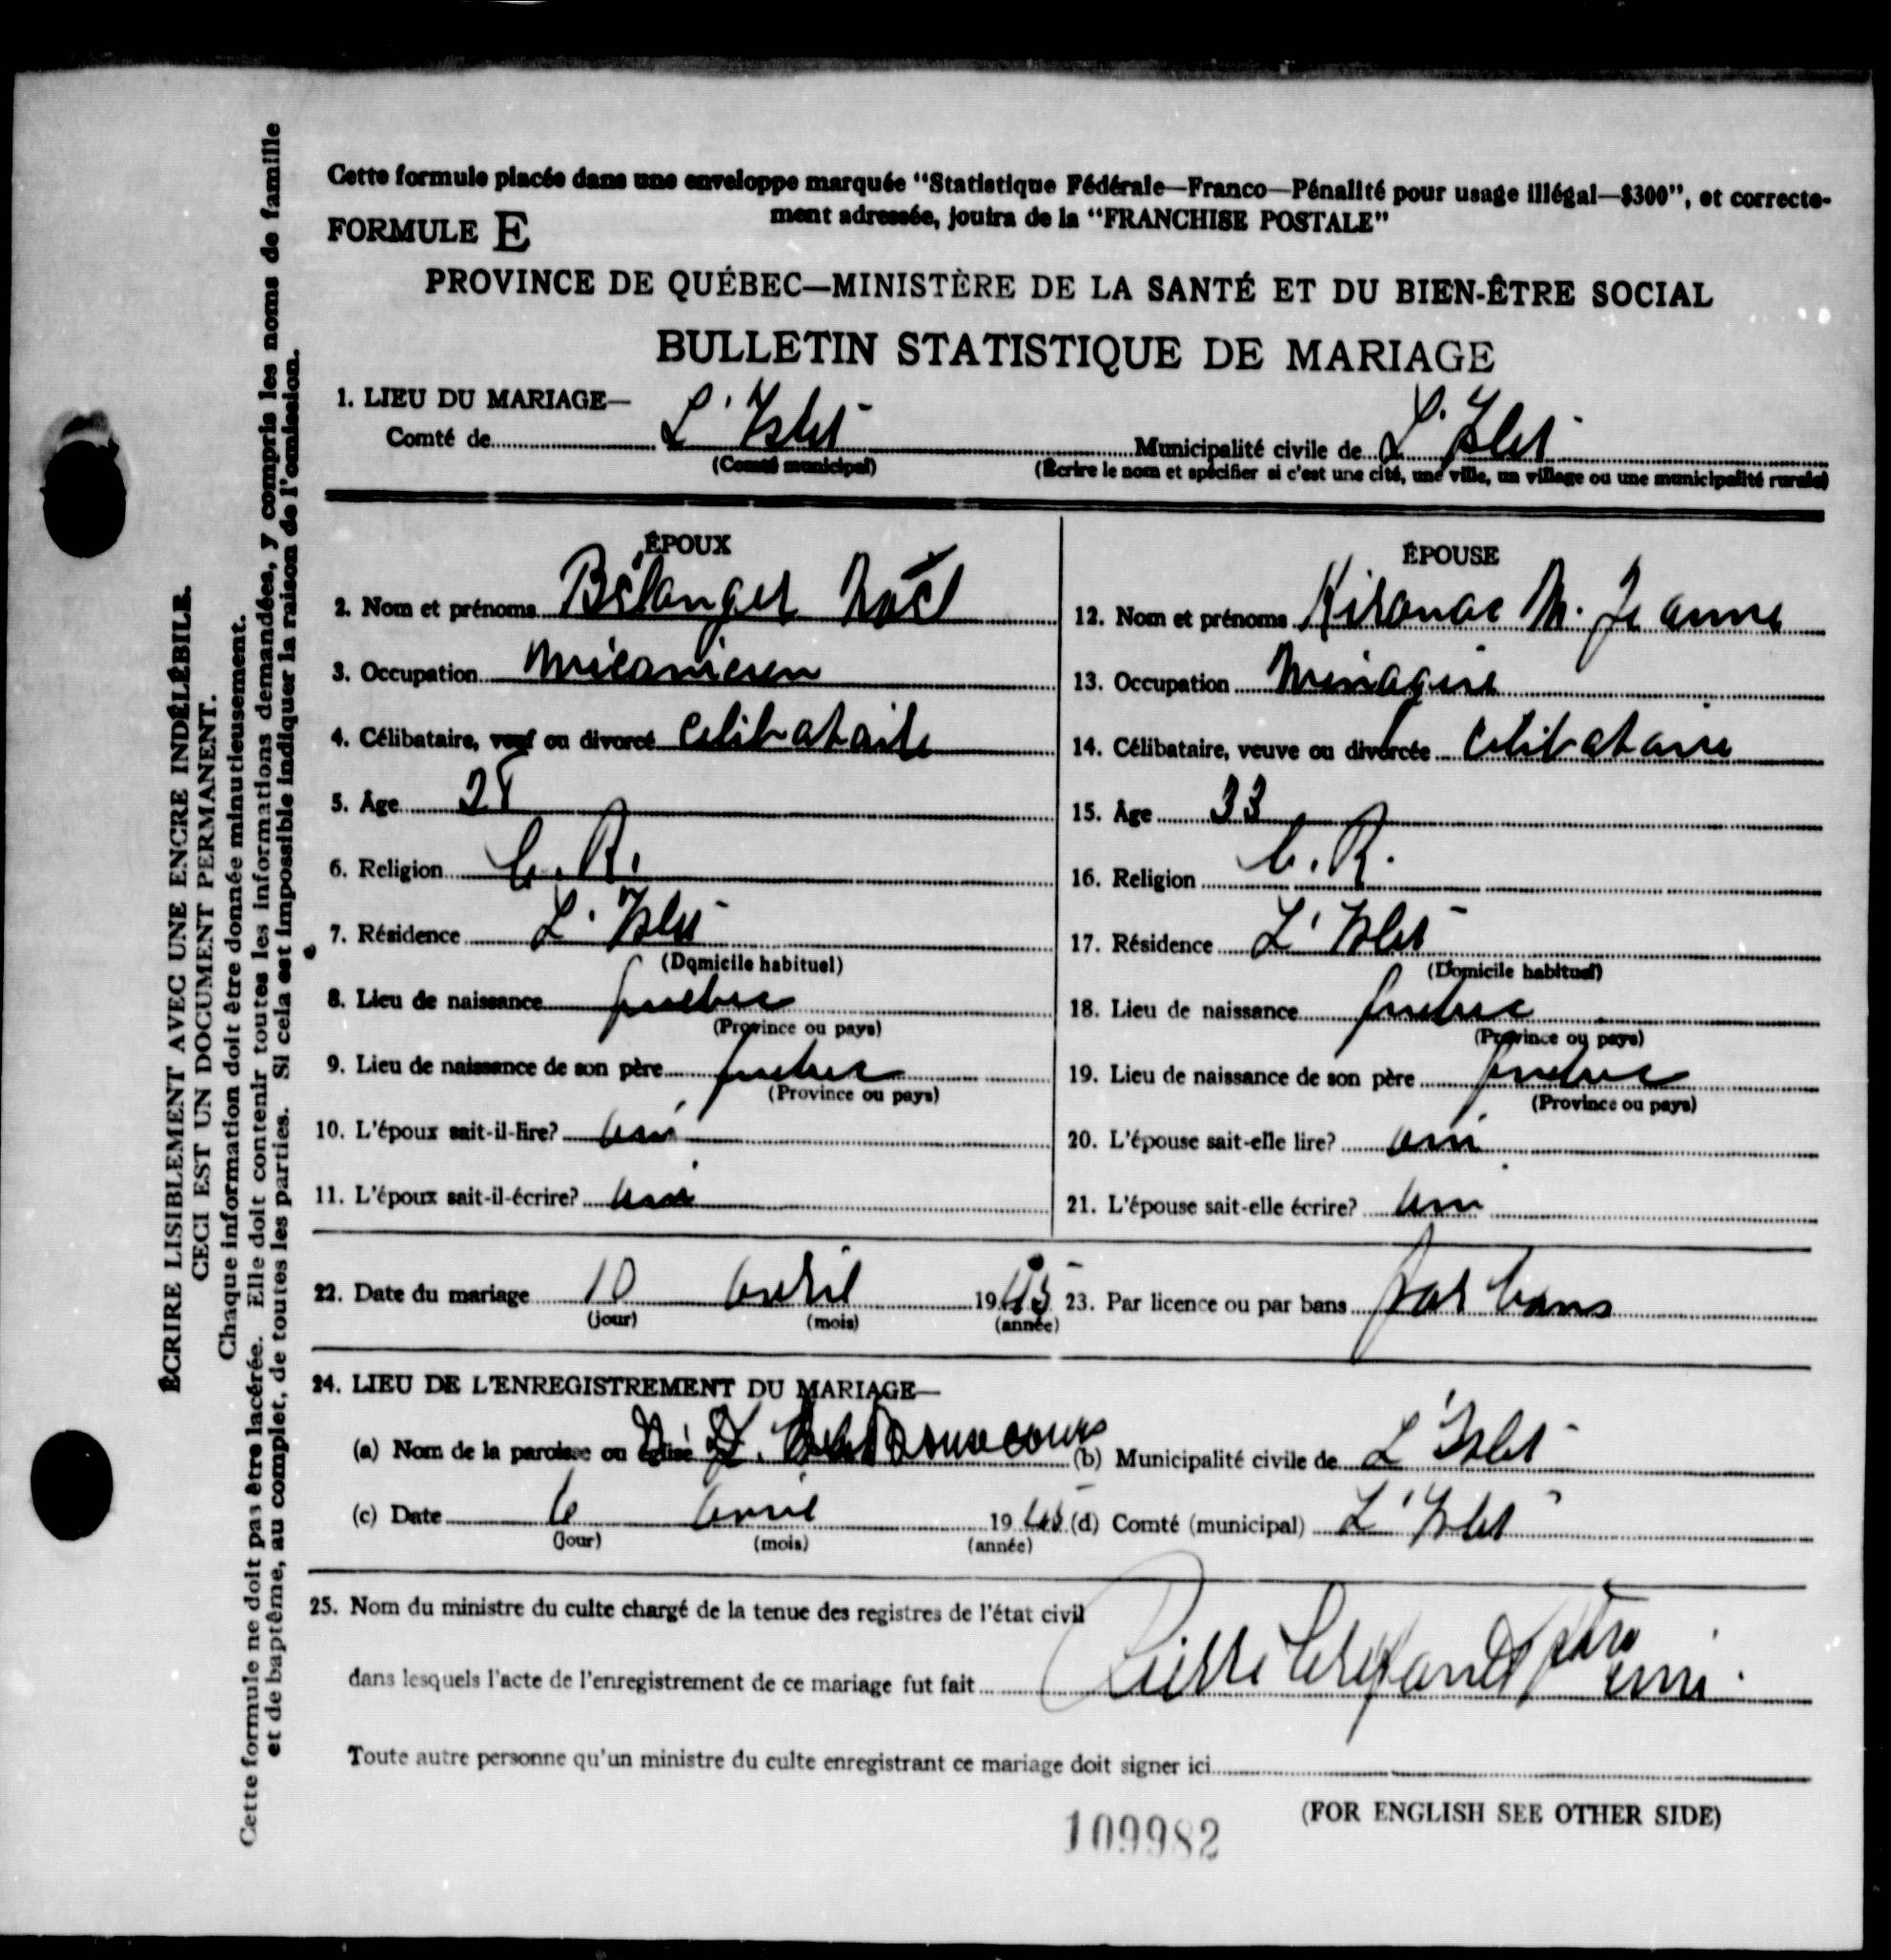 Cette formule placée dans une enveloppe marquée "Statistique Fédérale—Franco—Pénalité pour usage illégal—$300", et correcte-
ment adressée, jouira de la "FRANCHISE POSTALE"
FORMULE E
PROVINCE DE QUÉBEC—MINISTÈRE DE LA SANTÉ ET DU BIEN-ÊTRE SOCIAL
BULLETIN STATISTIQUE DE MARIAGE
1. LIEU DU MARIAGE—
Comté de L'Islet Municipalité civile de L'Islet
(Comté municipal) (Écrire le nom et spécifier si c'est une cité, une ville, un village ou une municipalité rurale)
ÉPOUX
2. Nom et prénoms Bélanger Noël
3. Occupation mécanicien
4. Célibataire, veuf ou divorcé célibataire
5. Âge 28
6. Religion C. R.
7. Résidence L'Islet
(Domicile habituel)
8. Lieu de naissance québec
(Province ou pays)
9. Lieu de naissance de son père québec
(Province ou pays)
10. L'époux sait-il-lire? oui
11. L'époux sait-il-écrire? oui
ÉPOUSE
12. Nom et prénoms Kirouac M. Jeanne
13. Occupation Ménagère
14. Célibataire, veuve ou divorcée célibataire
15. Âge 33
16. Religion C. R.
17. Résidence L'Islet
(Domicile habituel)
18. Lieu de naissance québec
(Province ou pays)
19. Lieu de naissance de son père québec
(Province ou pays)
20. L'épouse sait-elle lire? oui
21. L'épouse sait-elle écrire? oui
22. Date du mariage 10 avril 1945 23. Par licence ou par bans par bans
(jour) (mois) (année)
24. LIEU DE L'ENREGISTREMENT DU MARIAGE—
(a) Nom de la paroisse ou église N. D. Bonsecours (b) Municipalité civile de L'Islet
(c) Date avril 1945 (d) Comté (municipal) L'Islet
(jour) (mois) (année)
25. Nom du ministre du culte chargé de la tenue des registres de l'état civil
dans lesquels l'acte de l'enregistrement de ce mariage fut fait Pierre ptre curé
Toute autre personne qu'un ministre du culte enregistrant ce mariage doit signer ici
(FOR ENGLISH SEE OTHER SIDE)
109982
ÉCRIRE LISIBLEMENT AVEC UNE ENCRE INDÉLÉBILE.
CECI EST UN DOCUMENT PERMANENT.
Chaque information doit être donnée minutieusement.
Cette formule ne doit pas être lacérée. Elle doit contenir toutes les informations demandées, y compris les noms de famille
et de baptême, au complet, de toutes les parties. Si cela est impossible indiquer la raison de l'omission.